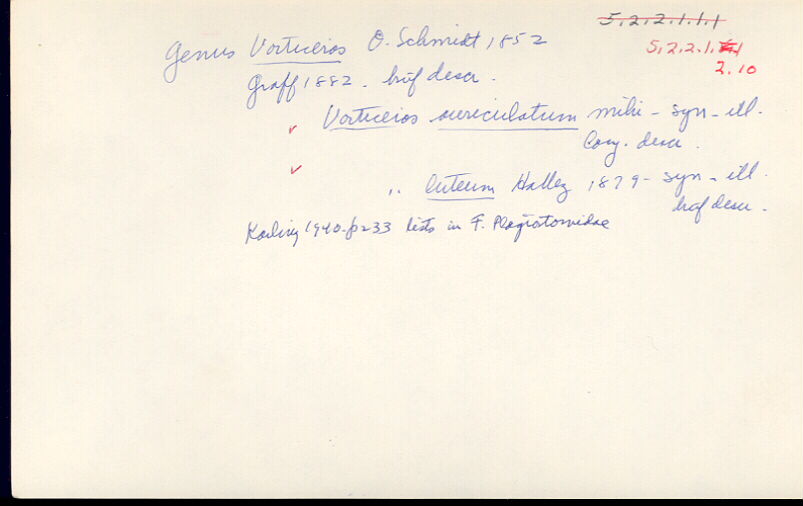 5.2.2.1.1.1
Genus Vorticeros O. Schmidt 1852
5.2.2.1.
2.10
Graff 1882. brief descr.
Vorticeros auriculatum mihi - syn - ill.
Long. descr.
✓
✓
" luteum Hallez 1879 - syn - ill.
brief descr.
Karling 1940 - p 233 lists in F. Plagiostomidae